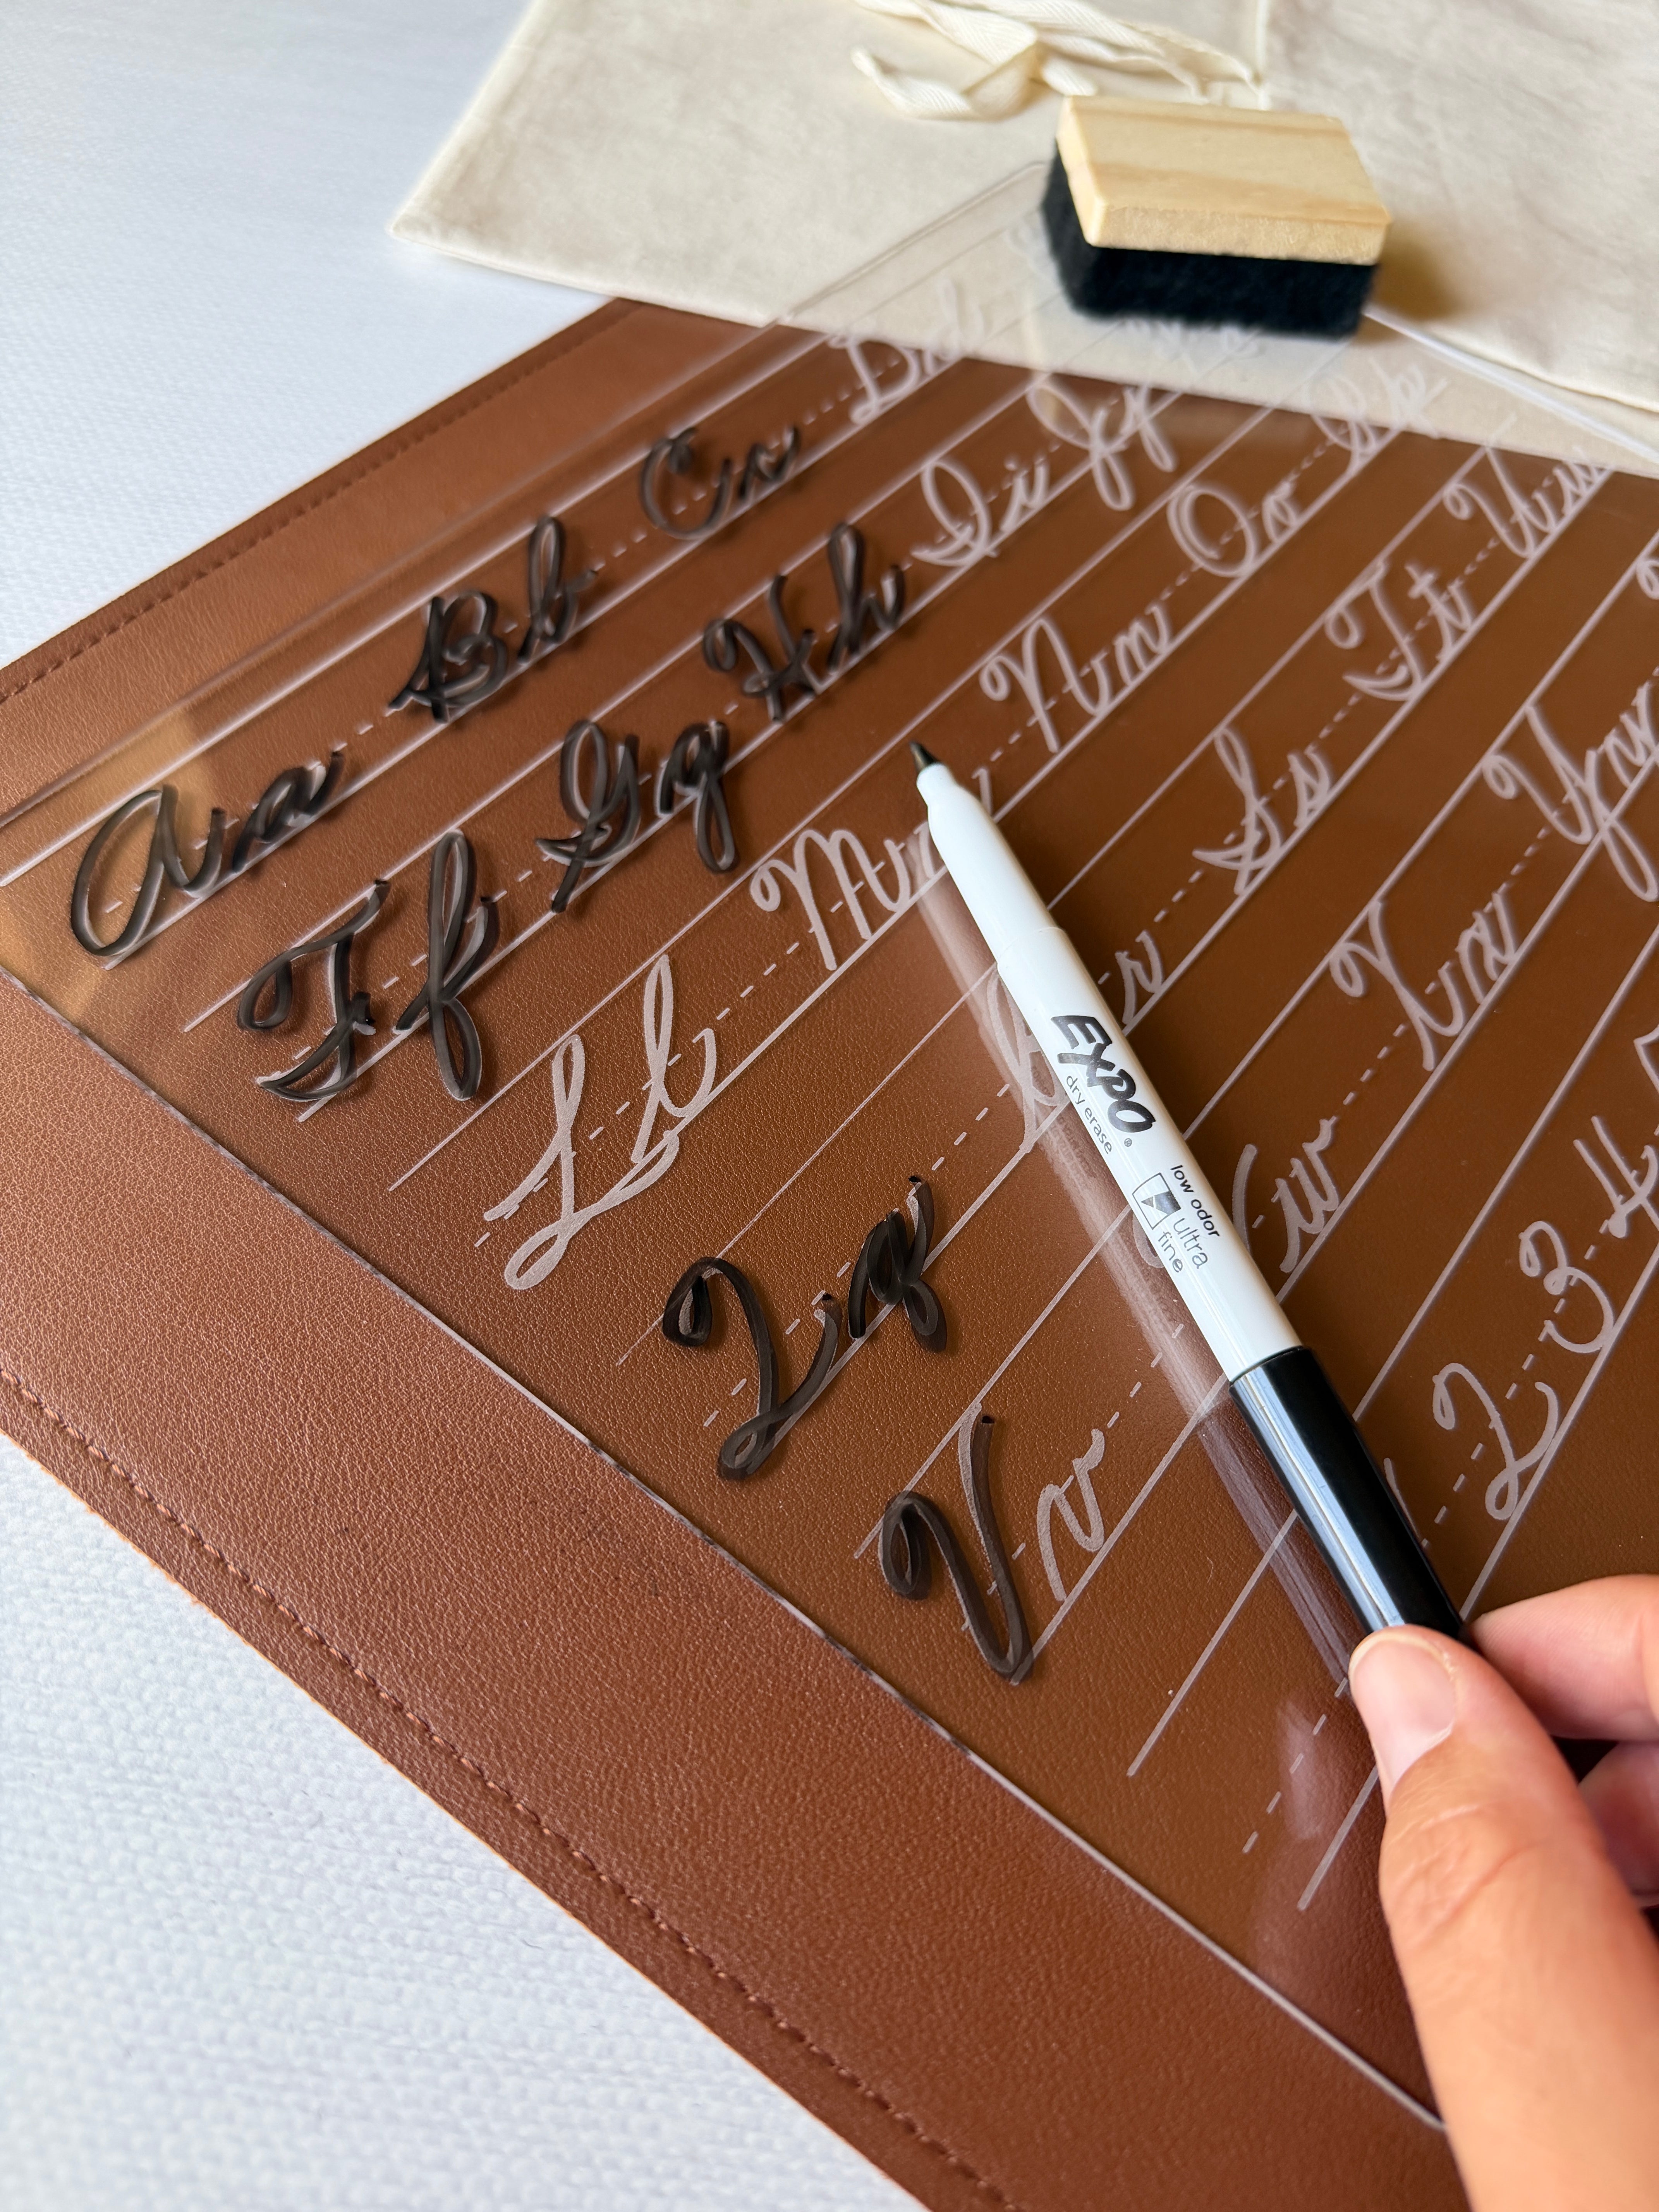 Aa Bb Cc Dd
Ff Gg Hh Ii Jj
Ll Mm Nn Oo Pp
Qq Rr Ss Tt Uu
Vv Ww Xx Yy
2 3 4 5
EXPO®
dry erase
low odor
ultra
fine